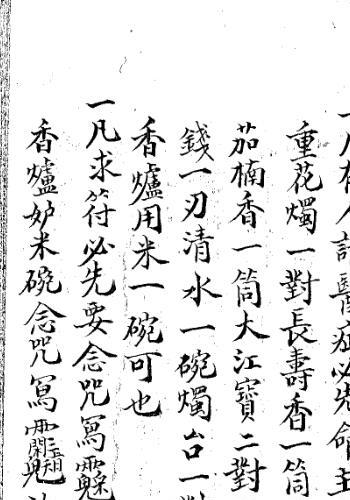 凡有人請醫症必先命主
重花燭一對長壽香一筒
茄楠香一筒大江寶二對
錢一刃清水一碗燭台一對
香爐用米一碗可也
一凡求符必先要念咒寫
香爐妒米碗念咒寫